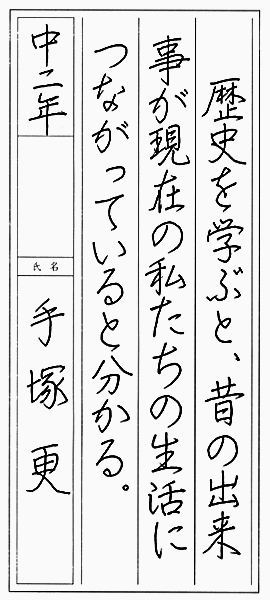 歴史を学ぶと、昔の出来
事が現在の私たちの生活に
つながっていると分かる。
中二年
氏名
手塚更